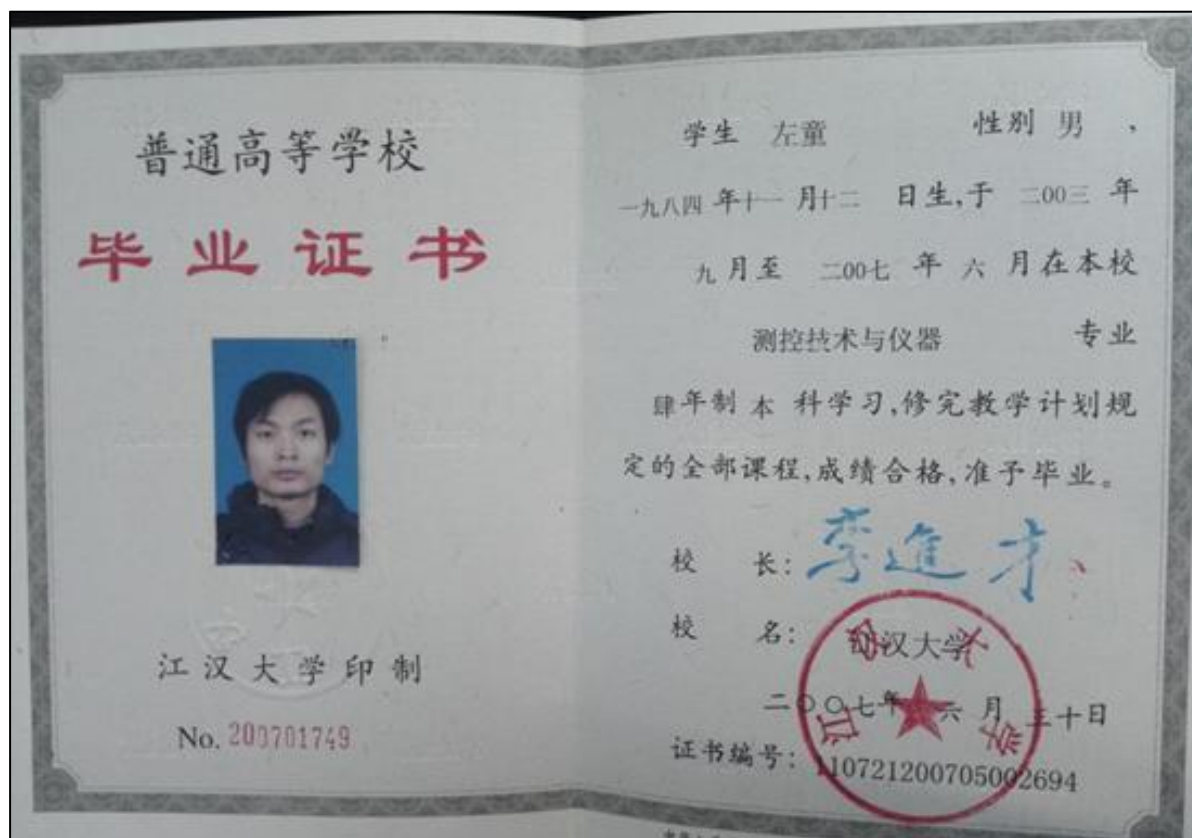 普通高等学校
毕业证书
江汉大学印制
No. 200701749
学生 左童 性别 男 ,
一九八四 年十一 月十二 日生,于 二00三 年
九 月至 二00七 年 六 月在本校
测控技术与仪器 专业
肆年制 本 科学习,修完教学计划规
定的全部课程,成绩合格,准予毕业。
校 长: 李進才
校 名: 江汉大学
江汉大学
二〇〇七年 六 月 三十日
证书编号: 110721200705002694